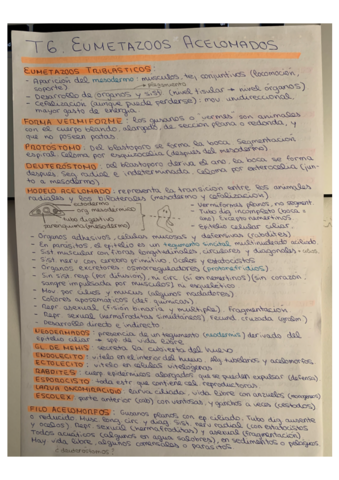 T6. EUMETAZOOS ACELOMADOS
EUMETAZOOS TRIBLÁSTICOS:
- Aparición del mesodermo: músculos, tej. conjuntivos (locomoción, soporte)
- Desarrollo de órganos y sist (nivel tisular → nivel órganos)
- Cefalización (aunque puede perderse): mov unidireccional
mayor gasto de energía
FORMA VERMIFORME: los gusanos o vermes son animales
con el cuerpo blando, alargado, de sección plana o redonda, y
que no poseen patas
PROTOSTOMO: Del blastoporo se forma la boca. Segmentación
espiral. Celoma por esquizocelia (después del mesodermo)
DEUTERÓSTOMO: del blastoporo deriva el ano, la boca se forma
después. Seg radial e indeterminada. Celoma por enterocelia (jun-
to a mesodermo)
MODELO ACELOMADO: representa la transición entre los animales
radiales y los bilaterales (mesodermo y cefalización)
ectodermo
org mesodérmico
tubo digestivo
parénquima (mesodermo)
- Vermiformes planos, no segment.
- Tubo dig incompleto (boca =
ano). Excepto nemertinos
- Epitelio celular ciliar
- Órganos adhesivos, células mucosas y defensivas (rabditos)
- En parásitos, el epitelio es un tegumento sincitial, multinucleado
- Sist muscular con fibras longitudinales, circulares y diagonales
- Sist nerv (con cerebro primitivo). Ocelos y estatocistos
- Órganos excretores osmorreguladores (protonefridios)
- Sin sist resp (por difusión), ni circ (sí en nemertinos) (sin corazón,
sangre impulsada por músculos), ni esquelético
- Mov por cilios y mucus (algunos nadadores)
- Colores aposemáticos (def. químicas)
- Repr asexual (fisión binaria y múltiple). Fragmentación
- Repr sexual (hermafroditas simultáneos), fecund cruzada (
- Desarrollo directo e indirecto
NEODERMADOS: presencia de un tegumento (neodermis) derivado del
epitelio ciliar ≠ spp de vida libre
GL DE MEHLIS: secreta la cubierta del huevo
ENDOLECITO: vitelo en el interior del huevo.
ECTOLECITO: vitelo en células vitelógenas
RABDITOS: cuerp epidérmicos alargados que se pueden expulsar (defensa)
ESPOROCISTO: toda estr que contiene cel reproductoras
LARVA ONCOMIRACIDIO: larva ciliada, vida libre con anclas (monogeneos)
ESCÓLEX: parte anterior (cab) con ventosas, y ganchos a veces (cestodos)
FILO ACELOMORFOS: Gusanos planos con ep ciliado. Tubo dig ausente
o reducido. Musc long, circ y diag. Sist nerv radial (con estatocistos
y ocelos). Repr sexual (hermafroditas) y asexual (fragmentación)
Todos acuáticos (algunos en aguas salobres), en sedimentos o pelágicos
Hay vida libre, algunos comensales o parásitos